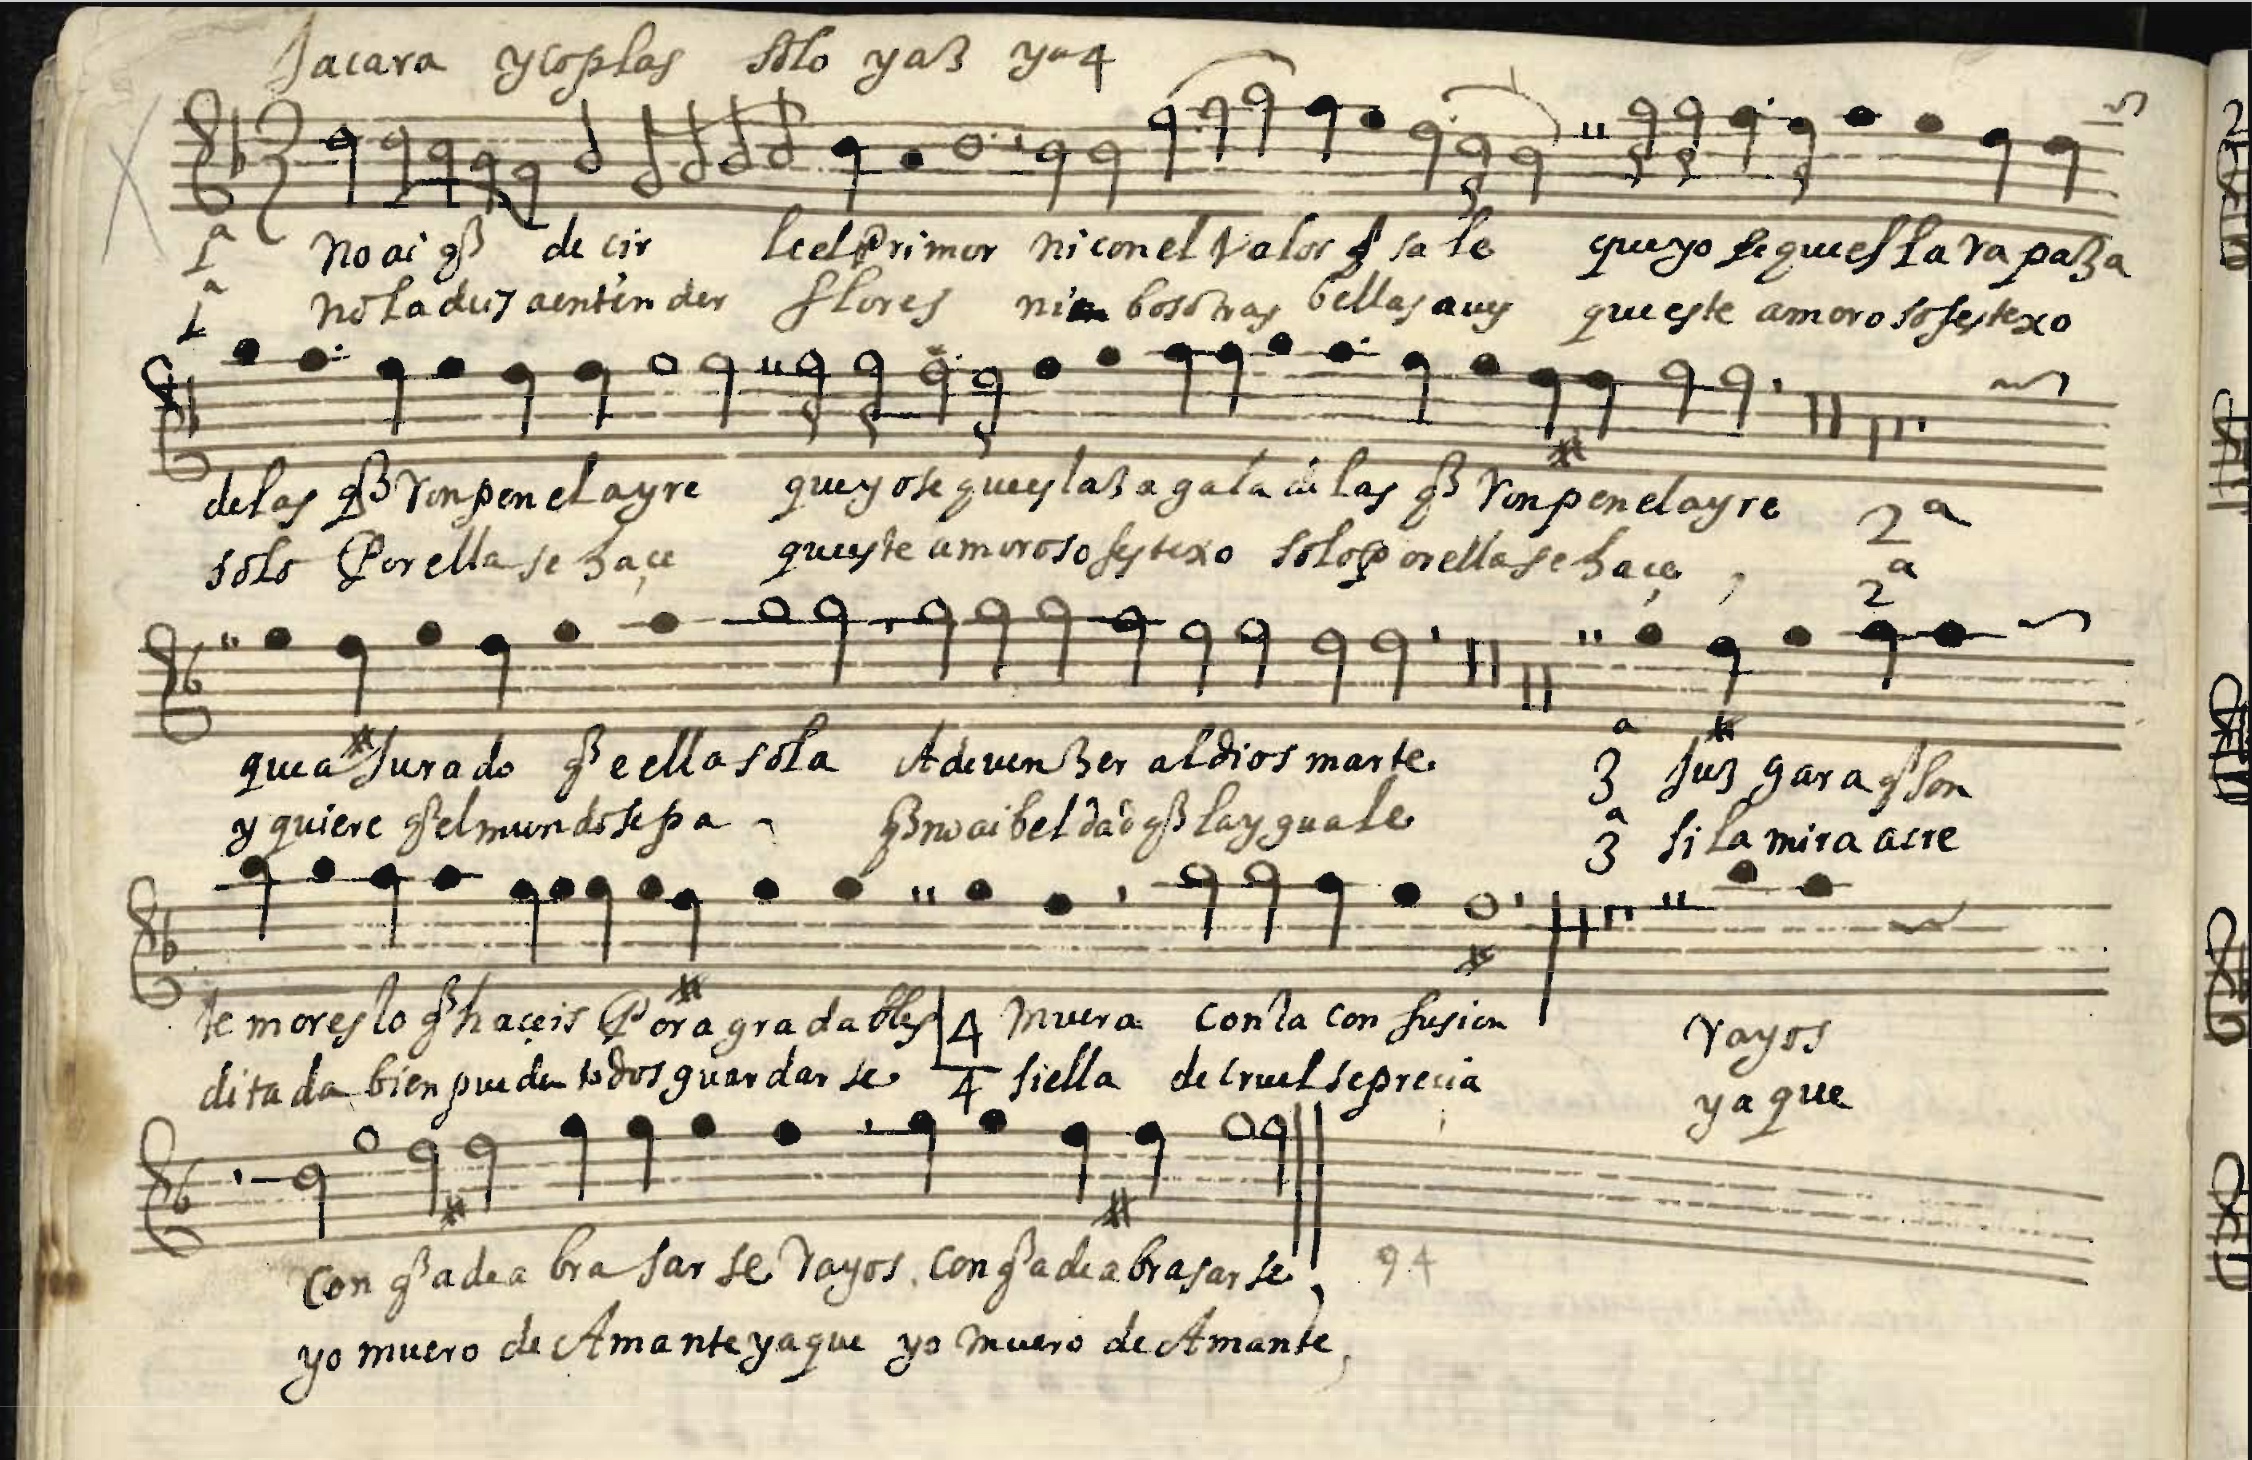 Jacara y coplas solo y a 3 y a 4
1ª no ai q̃ decir le el Primor ni con el valor q̃ sale que yo se que es la rapaza
1ª no la deis a entender flores ni bosotras bellas aues que este amoroso festexo
de las q̃ ronpen el ayre que yo se que es la zagala de las q̃ ronpen el ayre 2ª
solo Por ella se haçe que este amoroso festexo solo por ella se haçe, 2ª
que a Jurado q̃ e ella sola A de venzer al dios marte. 3ª Juzgara q̃ son
y quiere q̃ el mundo sepa q̃ no ai beldad q̃ la yguale 3ª si la mira acre
temores lo q̃ haçeis Por agradables 4 muera con la confusion rayos
ditada bien pueden todos guardarse 4 si ella de cruel se precia ya que
con q̃ a de abrasarse rayos. con q̃ a de abrasarse, 94
yo muero de Amante ya que yo muero de Amante,